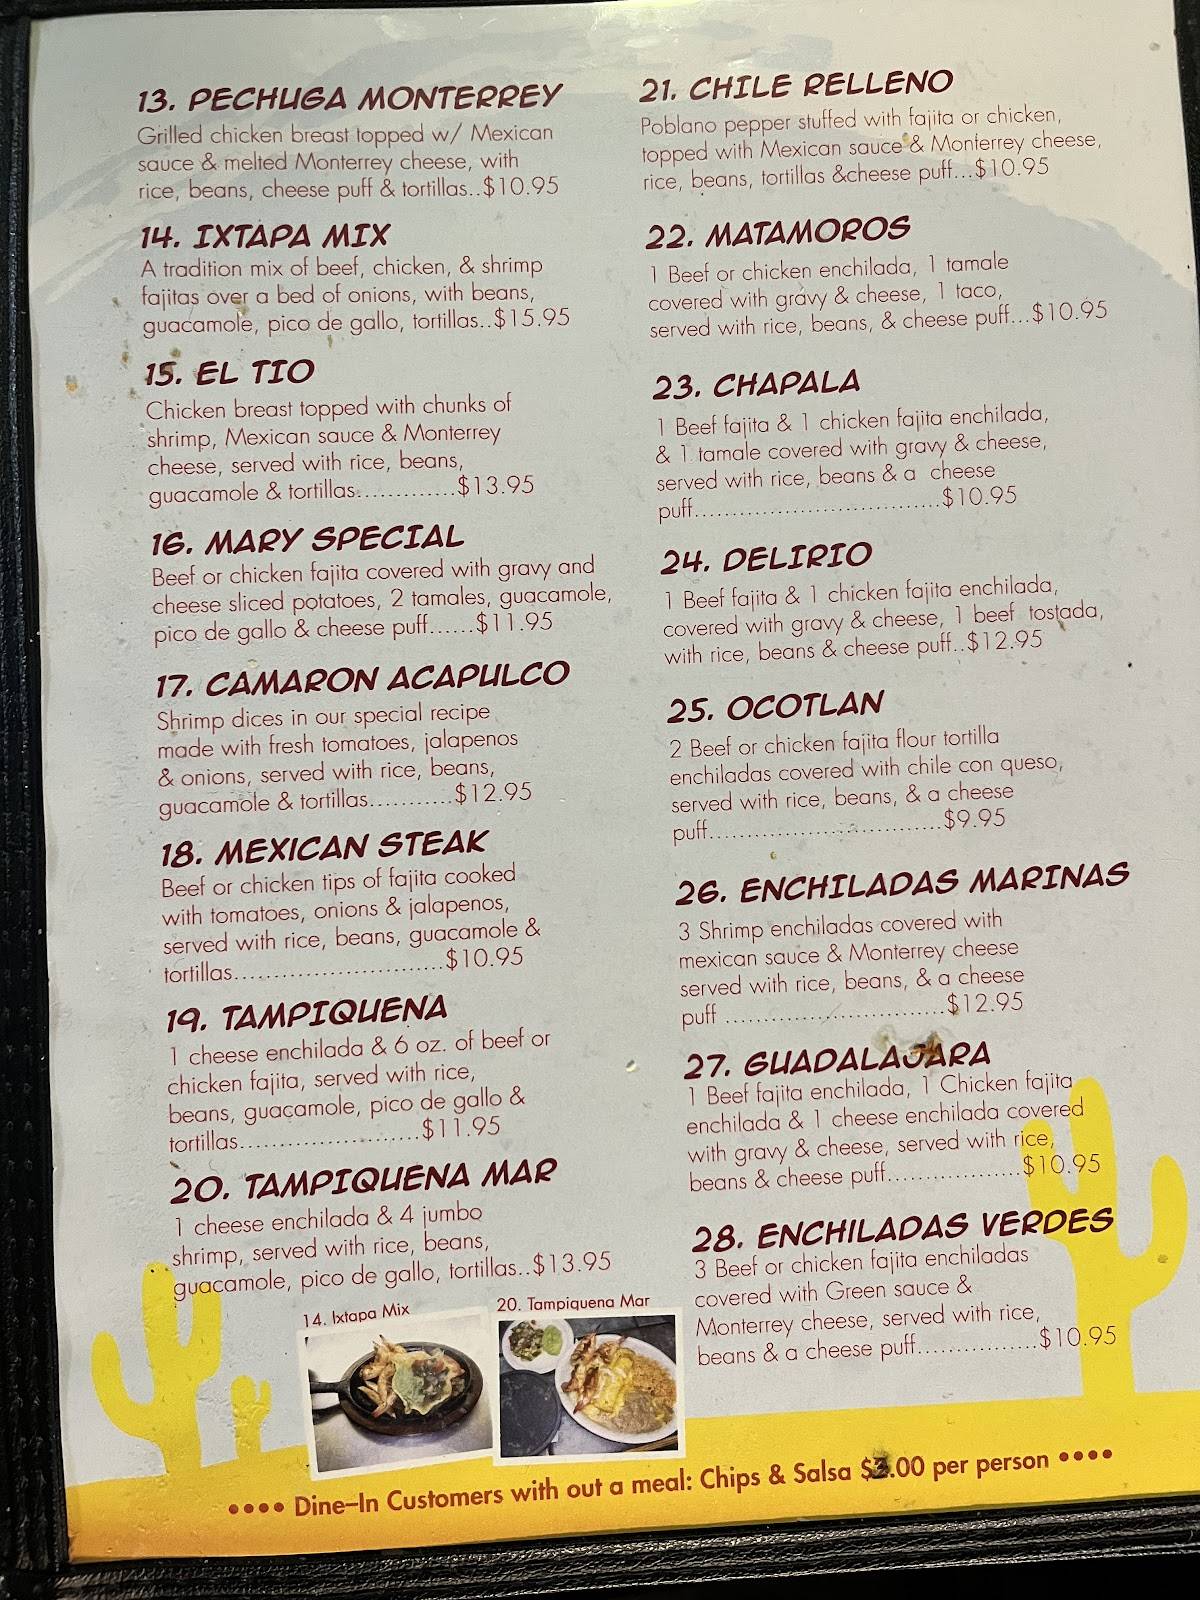 13. PECHUGA MONTERREY
Grilled chicken breast topped w/ Mexican
sauce & melted Monterrey cheese, with
rice, beans, cheese puff & tortillas..$10.95
14. IXTAPA MIX
A tradition mix of beef, chicken, & shrimp
fajitas over a bed of onions, with beans,
guacamole, pico de gallo, tortillas..$15.95
15. EL TIO
Chicken breast topped with chunks of
shrimp, Mexican sauce & Monterrey
cheese, served with rice, beans,
guacamole & tortillas.............$13.95
16. MARY SPECIAL
Beef or chicken fajita covered with gravy and
cheese sliced potatoes, 2 tamales, guacamole,
pico de gallo & cheese puff......$11.95
17. CAMARON ACAPULCO
Shrimp dices in our special recipe
made with fresh tomatoes, jalapenos
& onions, served with rice, beans,
guacamole & tortillas...........$12.95
18. MEXICAN STEAK
Beef or chicken tips of fajita cooked
with tomatoes, onions & jalapenos,
served with rice, beans, guacamole &
tortillas...........................$10.95
19. TAMPIQUENA
1 cheese enchilada & 6 oz. of beef or
chicken fajita, served with rice,
beans, guacamole, pico de gallo &
tortillas.......................$11.95
20. TAMPIQUENA MAR
1 cheese enchilada & 4 jumbo
shrimp, served with rice, beans,
guacamole, pico de gallo, tortillas..$13.95
14. Ixtapa Mix
20. Tampiquena Mar
21. CHILE RELLENO
Poblano pepper stuffed with fajita or chicken,
topped with Mexican sauce & Monterrey cheese,
rice, beans, tortillas &cheese puff...$10.95
22. MATAMOROS
1 Beef or chicken enchilada, 1 tamale
covered with gravy & cheese, 1 taco,
served with rice, beans, & cheese puff...$10.95
23. CHAPALA
1 Beef fajita & 1 chicken fajita enchilada,
& 1 tamale covered with gravy & cheese,
served with rice, beans & a cheese
puff................................$10.95
24. DELIRIO
1 Beef fajita & 1 chicken fajita enchilada,
covered with gravy & cheese, 1 beef tostada,
with rice, beans & cheese puff..$12.95
25. OCOTLAN
2 Beef or chicken fajita flour tortilla
enchiladas covered with chile con queso,
served with rice, beans, & a cheese
puff..............................$9.95
26. ENCHILADAS MARINAS
3 Shrimp enchiladas covered with
mexican sauce & Monterrey cheese
served with rice, beans, & a cheese
puff .............................$12.95
27. GUADALAJARA
1 Beef fajita enchilada, 1 Chicken fajita
enchilada & 1 cheese enchilada covered
with gravy & cheese, served with rice,
beans & cheese puff.................$10.95
28. ENCHILADAS VERDES
3 Beef or chicken fajita enchiladas
covered with Green sauce &
Monterrey cheese, served with rice,
beans & a cheese puff................$10.95
•••• Dine–In Customers with out a meal: Chips & Salsa $3.00 per person ••••